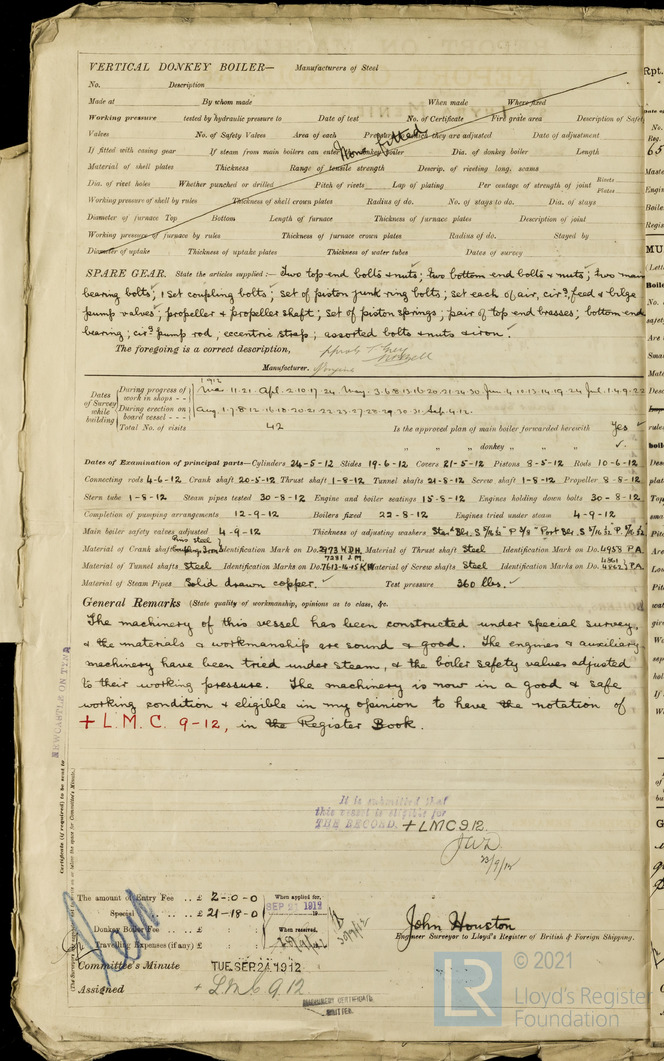 VERTICAL DONKEY BOILER— Manufacturers of Steel
No. Description
Made at By whom made When made Where fixed
Working pressure tested by hydraulic pressure to Date of test No. of Certificate Fire grate area Description of Safety
Valves No. of Safety Valves Area of each Pressure which they are adjusted Date of adjustment
None fitted
If fitted with easing gear If steam from main boilers can enter donkey boiler Dia. of donkey boiler Length
Material of shell plates Thickness Range of tensile strength Descrip. of riveting long. seams
Dia. of rivet holes Whether punched or drilled Pitch of rivets Lap of plating Per centage of strength of joint Rivets Plates
Working pressure of shell by rules Thickness of shell crown plates Radius of do. No. of stays to do. Dia. of stays
Diameter of furnace Top Bottom Length of furnace Thickness of furnace plates Description of joint
Working pressure of furnace by rules Thickness of furnace crown plates Radius of do. Stayed by
Diameter of uptake Thickness of uptake plates Thickness of water tubes Dates of survey
SPARE GEAR. State the articles supplied:— Two top end bolts & nuts; two bottom end bolts & nuts; two main
bearing bolts; 1 set coupling bolts; set of piston junk ring bolts; set each of air, circ, feed & bilge
pump valves; propeller & propeller shaft; set of piston springs; pair of top end brasses; bottom end
bearing; circ. pump rod, eccentric strap; assorted bolts & nuts & iron.
The foregoing is a correct description,
Manufacturer.
Dates of Survey while building
During progress of work in shops - -
1912
Mar. 11. 21. Apl. 2. 10. 17. 24. May. 3. 6. 8. 13. 16. 20. 21. 24. 30 Jun. 4. 10. 13. 14. 19. 24. Jul. 1. 4. 9. 22
During erection on board vessel - - -
Aug. 1. 7. 8. 12. 16. 18. 20. 21. 22. 23. 27. 28. 29. 30. 31 Sep. 4. 12.
Total No. of visits 42 Is the approved plan of main boiler forwarded herewith Yes
" " " donkey " " "
Dates of Examination of principal parts—Cylinders 24-5-12 Slides 19-6-12 Covers 21-5-12 Pistons 8-5-12 Rods 10-6-12
Connecting rods 4-6-12 Crank shaft 20-5-12 Thrust shaft 1-8-12 Tunnel shafts 21-8-12 Screw shaft 1-8-12 Propeller 8-8-12
Stern tube 1-8-12 Steam pipes tested 30-8-12 Engine and boiler seatings 15-8-12 Engines holding down bolts 30-8-12
Completion of pumping arrangements 12-9-12 Boilers fixed 22-8-12 Engines tried under steam 4-9-12
Main boiler safety valves adjusted 4-9-12 Thickness of adjusting washers
Material of Crank shaft Identification Mark on Do. 2973 W.D.H. Material of Thrust shaft Steel Identification Mark on Do. 4958 P.A.
Material of Tunnel shafts Steel Identification Marks on Do. 7613-14-15 KW Material of Screw shafts Steel Identification Marks on Do. P.A.
Material of Steam Pipes Solid drawn copper. Test pressure 360 lbs.
General Remarks (State quality of workmanship, opinions as to class, &c.
The machinery of this vessel has been constructed under special survey,
& the materials & workmanship are sound & good. The engines & auxiliary
machinery have been tried under steam, & the boiler safety valves adjusted
to their working pressure. The machinery is now in a good & safe
working condition & eligible in my opinion to have the notation of
+ L.M.C. 9-12, in the Register Book.
It is submitted that
this vessel is eligible for
THE RECORD. + LMC 9.12.
J.W.D.
23/9/12
NEWCASTLE ON TYNE
Certificate (if required) to be sent to
The amount of Entry Fee . . £ 2 - 0 - 0 When applied for,
Special . . . . £ 21 - 18 - 0 SEP 21 1912
Donkey Boiler Fee . . . £ : : When received,
Travelling Expenses (if any) £ : :
John Houston
Engineer Surveyor to Lloyd's Register of British & Foreign Shipping.
Committee's Minute TUE. SEP. 24 1912
Assigned + LMC 9.12
MACHINERY CERTIFICATE
WRITTEN.
LR
© 2021
Lloyd's Register
Foundation
Rpt.